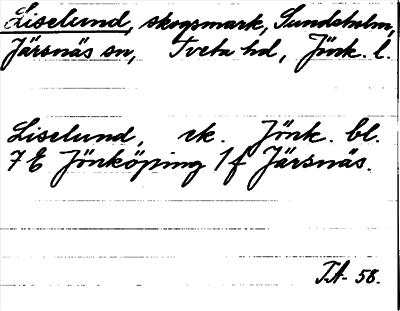 Liselund, skogsmark, Sundsholm,
Järsnäs sn, Tveta hd, Jönk. l.
Liselund, ek. Jönk. bl.
7 E Jönköping 1f Järsnäs.
T.A. 58.